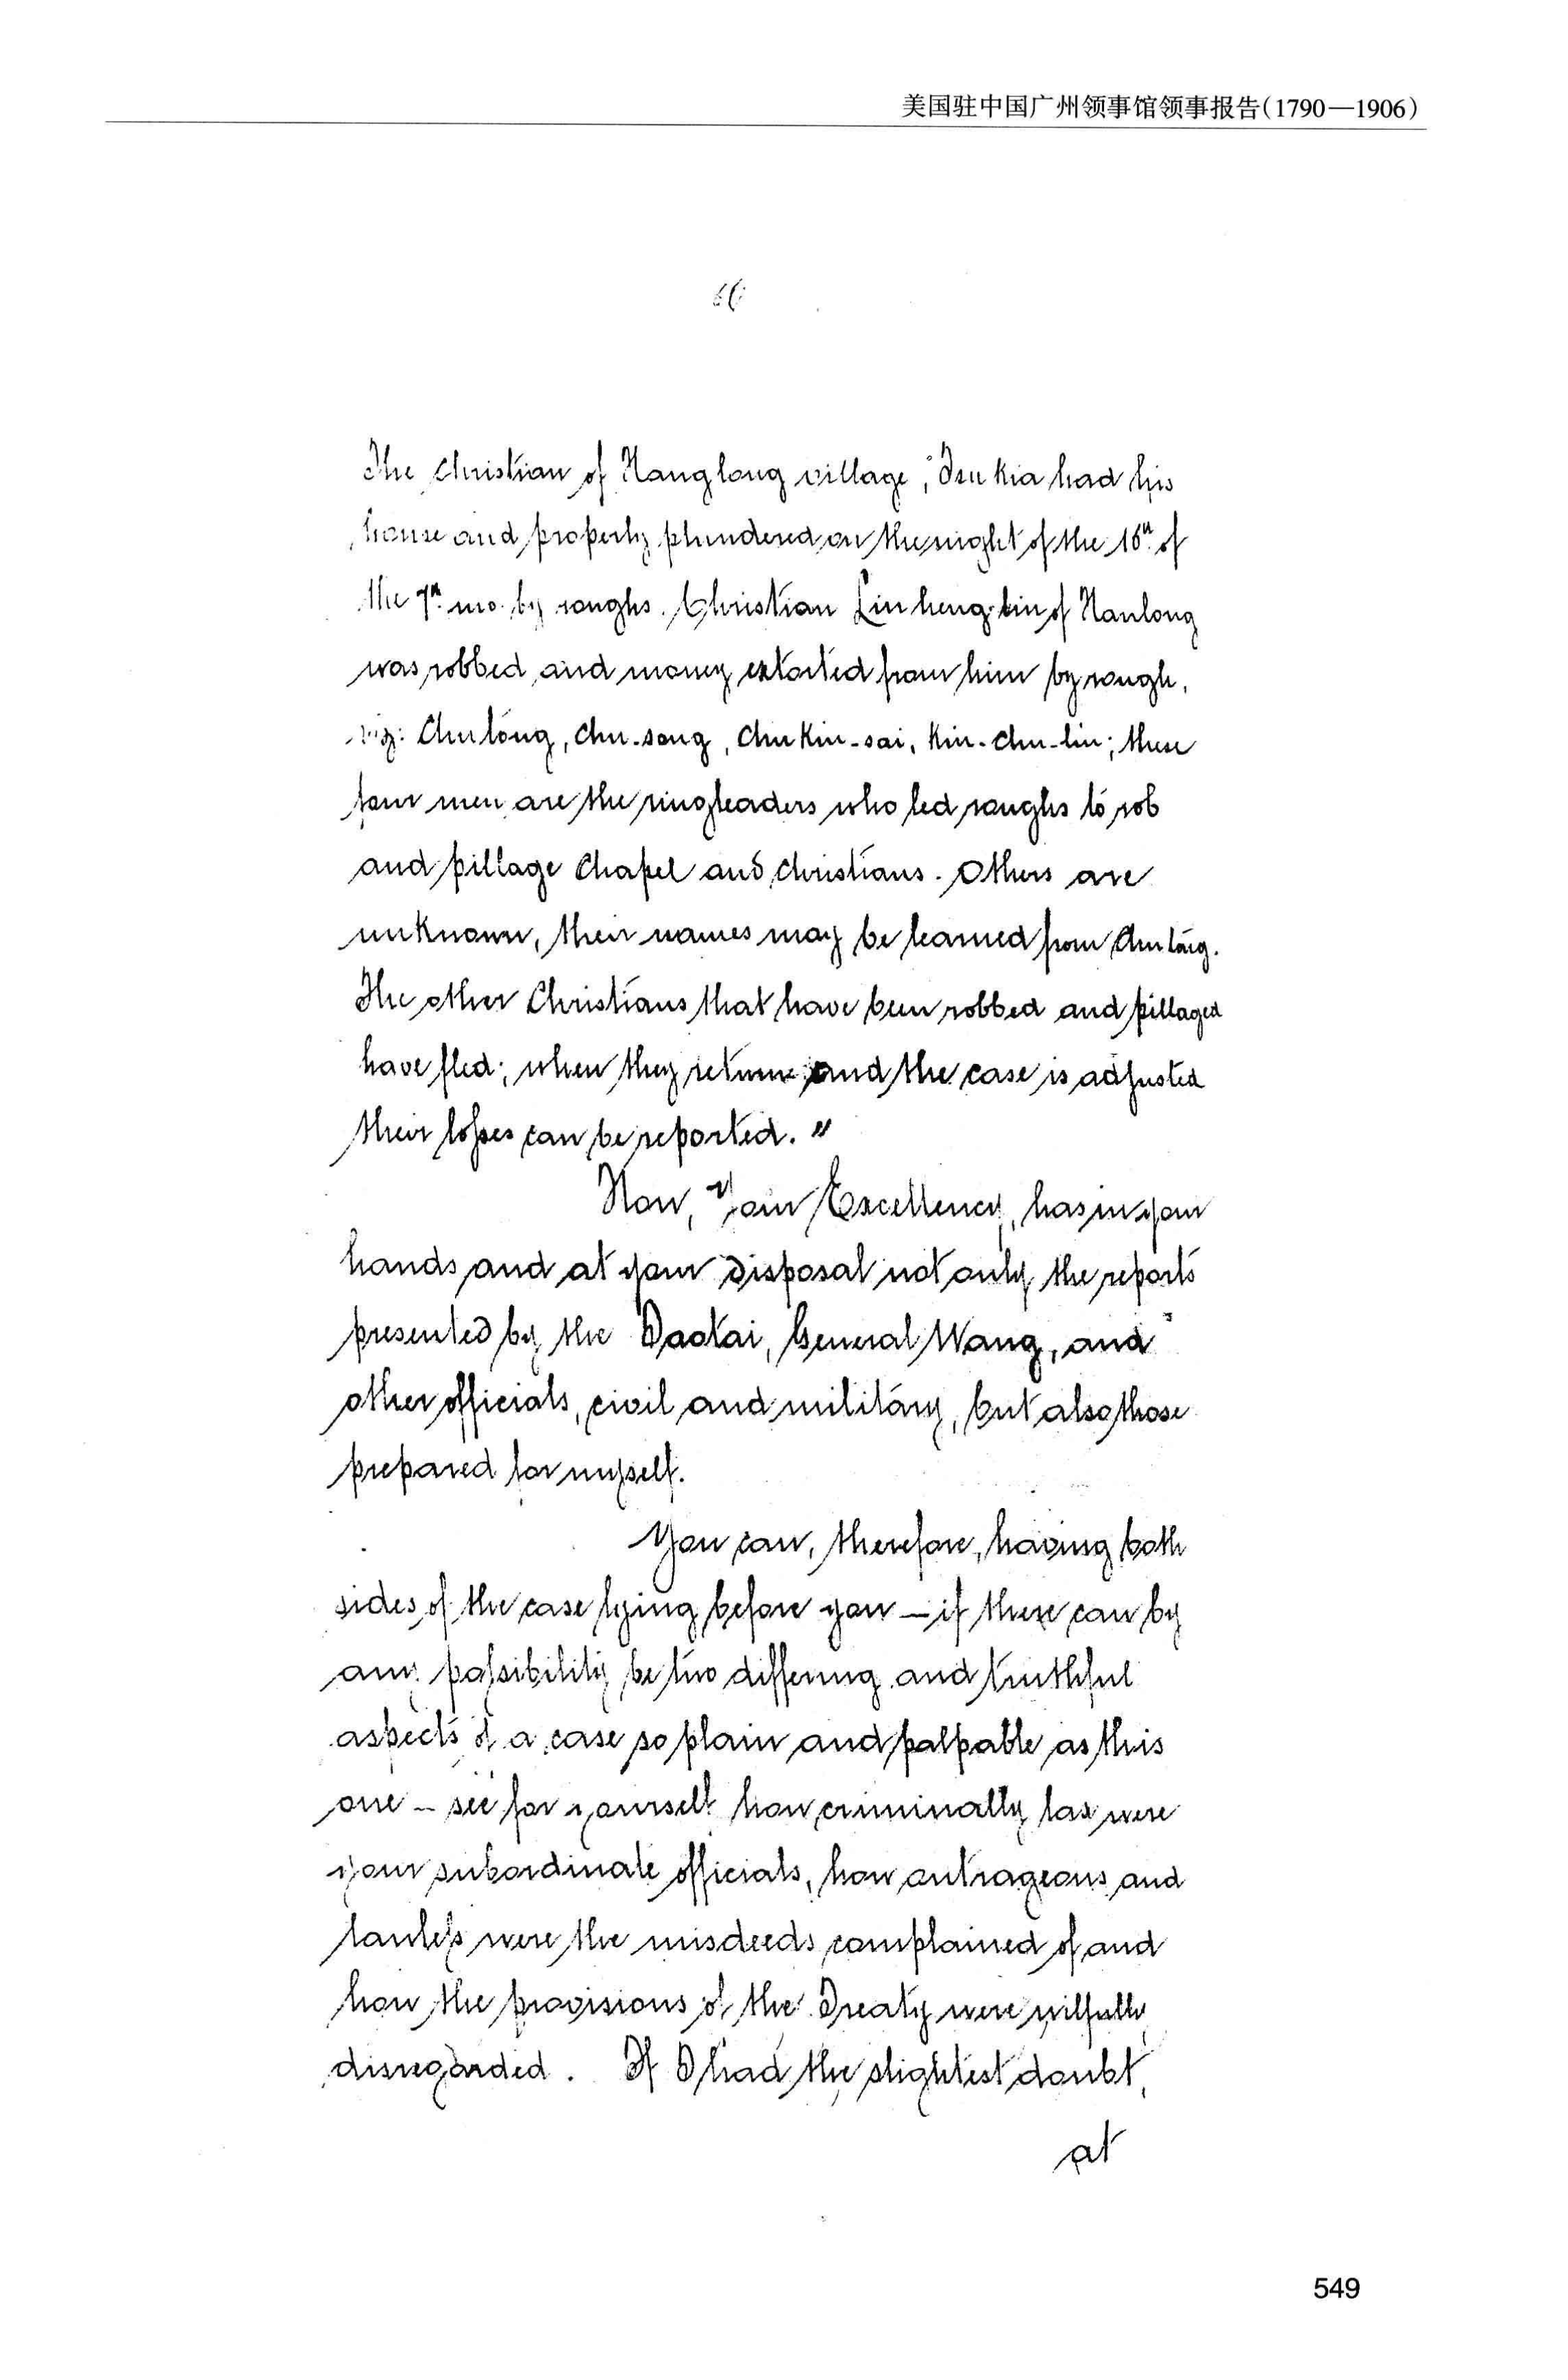 美国驻中国广州领事馆领事报告(1790—1906)
The Christian of Nanglong village, Tsu Kia had his
house and property plundered on the night of the 16th of
the 7th mo. by roughs. Christian Lin heng-bin of Nanlong
was robbed and money extorted from him by rough,
viz: Chu long, Chu-song, Chu Kin-sai, Kin-chu-lin; these
four men are the ringleaders who led roughs to rob
and pillage Chapel and Christians. Others are
unknown, their names may be learned from Chu long.
The other Christians that have been robbed and pillaged
have fled; when they return and the case is adjusted
their losses can be reported."
Now, Your Excellency, has in your
hands and at your disposal not only the reports
presented by the Taotai, General Wang, and
other officials, civil and military, but also those
prepared for myself.
You can, therefore, having both
sides of the case lying before you — if there can by
any possibility be two differing and truthful
aspects of a case so plain and palpable as this
one — see for yourself how criminally lax were
your subordinate officials, how outrageous and
were the misdeeds complained of and
how the provisions of the Treaty were wilfully
disregarded. If I had the slightest doubt,
at
549